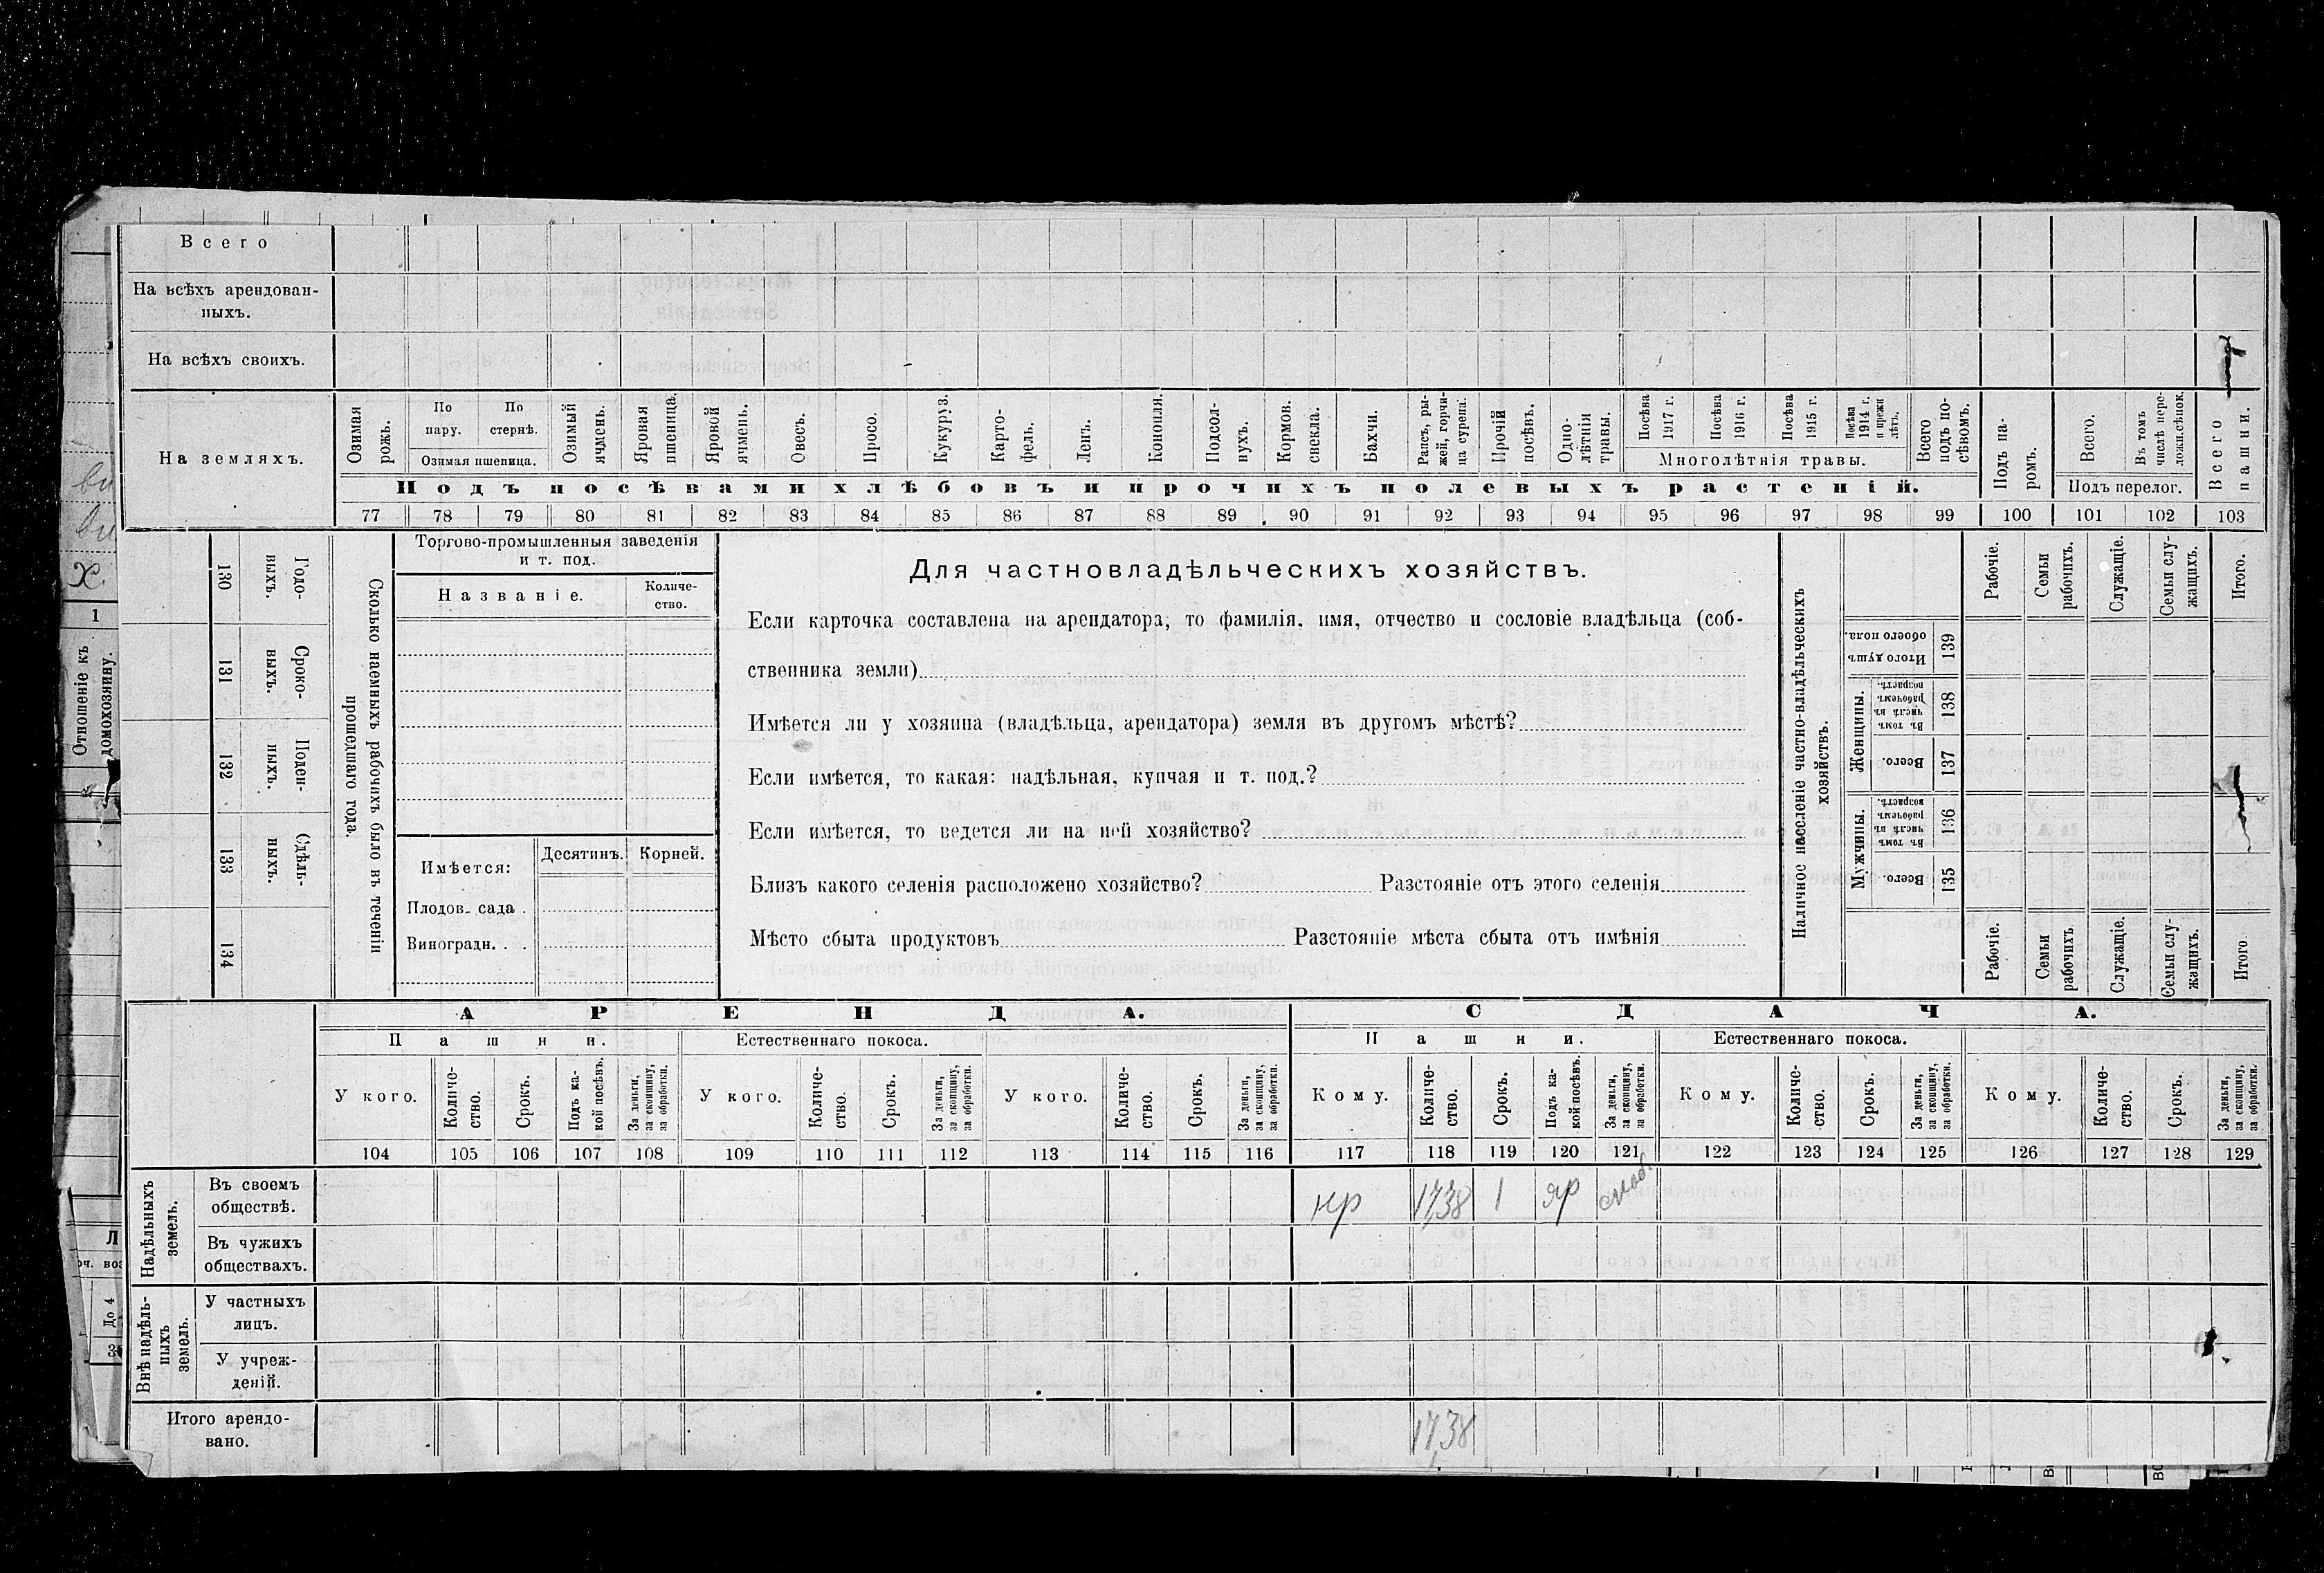 Всего
На всѣхъ арендован-
ныхъ.
На всѣхъ своихъ.
На земляхъ.
Озимая рожь.
По пару.
По стернѣ.
Озимая пшеница.
Озимый ячмень.
Яровая пшеница.
Яровой ячмень.
Овесъ.
Просо.
Кукуруз.
Карто-
фель.
Ленъ.
Конопля.
Подсол-
нухъ.
Кормов. свекла.
Бахчи.
Рапсъ, ры-
жей, горчи-
ца сурепа.
Прочій посѣвъ.
Одно-
лѣтнія травы.
Посѣва 1917 г.
Посѣва 1916 г.
Посѣва 1915 г.
Посѣва 1914 г. и прежн лѣтъ.
Многолѣтнія травы.
Всего подъ по-
сѣвомъ.
Подъ па-
ромъ.
Всего.
Въ томъ числѣ пере-
ложн.сѣнок.
Подъ перелог.
Всего пашни.
Подъ посѣвами хлѣбовъ и прочихъ полевыхъ растеній.
77 78 79 80 81 82 83 84 85 86 87 88 89 90 91 92 93 94 95 96 97 98 99 100 101 102 103
Годо-
выхъ.
130
Сроко-
выхъ.
131
Поден-
ныхъ.
132
Сдѣль-
ныхъ.
133
134
Сколько наемныхъ рабочихъ было въ теченіи
прошедшаго года.
Торгово-промышленныя заведенія
и т. под.
Названіе.
Количе-
ство.
Имѣется:
Десятинъ.
Корней.
Плодов. сада .
Виноградн. . .
Для частновладѣльческихъ хозяйствъ.
Если карточка составлена на арендатора, то фамилія, имя, отчество и сословіе владѣльца (соб-
ственника земли)
Имѣется ли у хозяина (владѣльца, арендатора) земля въ другомъ мѣстѣ?
Если имѣется, то какая: надѣльная, купчая и т. под.?
Если имѣется, то ведется ли на ней хозяйство?
Близъ какого селенія расположено хозяйство? Разстояніе отъ этого селенія
Мѣсто сбыта продуктовъ Разстояніе мѣста сбыта отъ имѣнія
Наличное населеніе частно-владѣльческихъ
хозяйствъ.
Рабочіе.
Семьи рабочихъ.
Служащіе.
Семьи слу-
жащихъ.
Итого.
Итого душъ обоего пола.
139
Женщины.
Въ томъ числѣ въ рабочемъ возрастѣ.
138
Всего.
137
Мужчины.
Въ томъ числѣ въ рабочемъ возрастѣ.
136
Всего.
135
Рабочіе.
Семьи рабочихъ.
Служащіе.
Семьи слу-
жащихъ.
Итого
АРЕНДА.
СДАЧА.
Пашни.
Естественнаго покоса.
Пашни.
Естественнаго покоса.
У кого.
Количе-
ство.
Срокъ.
Подъ ка-
кой посѣвъ.
За деньги, за скопщину, за обработки.
У кого.
Количе-
ство.
Срокъ.
За деньги, за скопщину, за обработки.
У кого.
Количе-
ство.
Срокъ.
За деньги, за скопщину, за обработки.
Кому.
Количе-
ство.
Срокъ.
Подъ ка-
кой посѣвъ.
За деньги, за скопщину, за обработки.
Кому.
Количе-
ство.
Срокъ.
За деньги, за скопщину, за обработки.
Кому.
Количе-
ство.
Срокъ.
За деньги, за скопщину, за обработки.
104 105 106 107 108 109 110 111 112 113 114 115 116 117 118 119 120 121 122 123 124 125 126 127 128 129
Надѣльныхъ земель.
Въ своемъ
обществѣ.
кр 17,38 1 яр
Въ чужихъ
обществахъ.
Внѣ надѣль-
ныхъ земель.
У частныхъ
лицъ.
У учреж-
деній.
Итого арендо-
вано.
17,38
Х.
1
Отношеніе къ домохозяину.
До 4